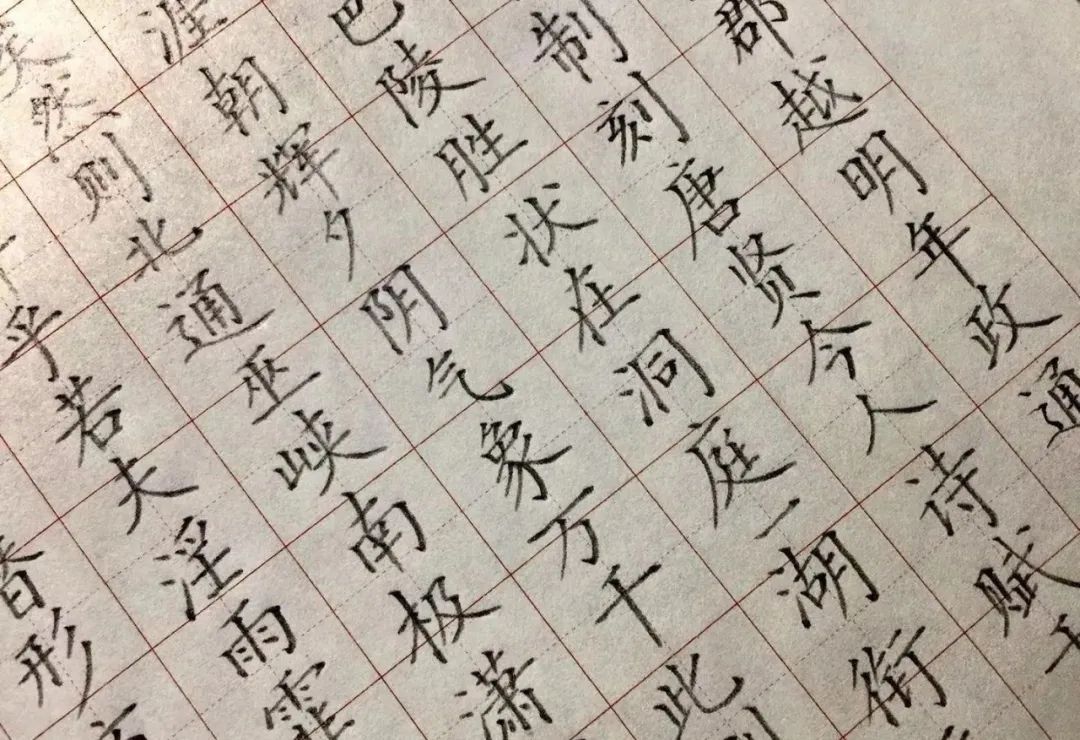 郡越明年政通
制刻唐贤今人诗赋于
巴陵胜状在洞庭一湖衔
涯朝辉夕阴气象万千此
矣然则北通巫峡南极潇
乎若夫淫雨霏
形